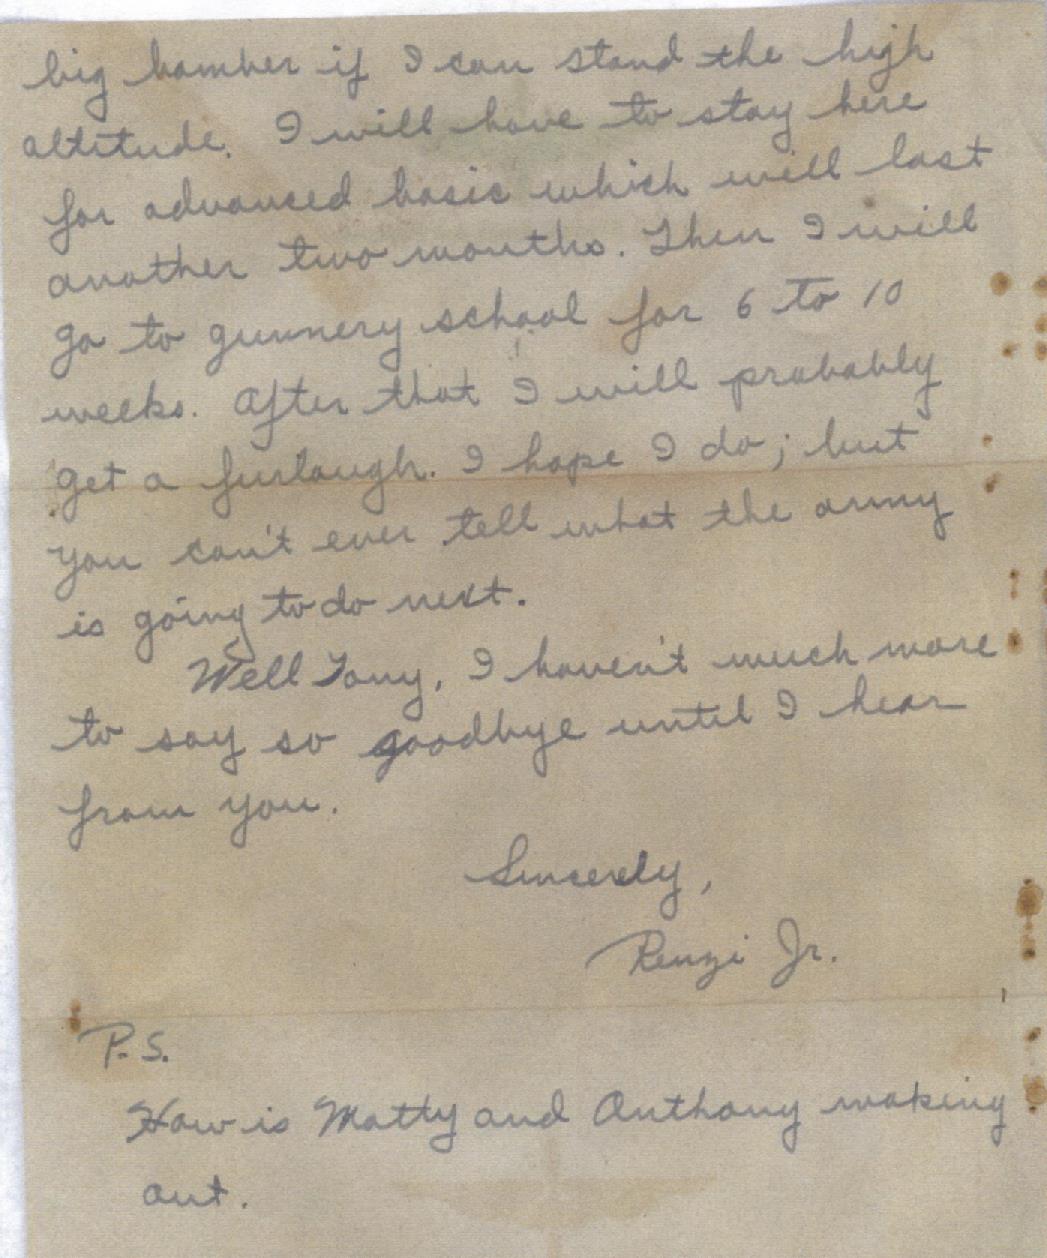 big bomber if I can stand the high
altitude. I will have to stay here
for advanced basic which will last
another two months. Then I will
go to gunnery school for 6 to 10
weeks. After that I will probably
get a furlough. I hope I do; but
you can't ever tell what the army
is going to do next.
Well Tony, I haven't much more
to say so goodbye until I hear
from you.
Sincerely,
Renzi Jr.
P.S.
How is Matty and Anthony making
out.